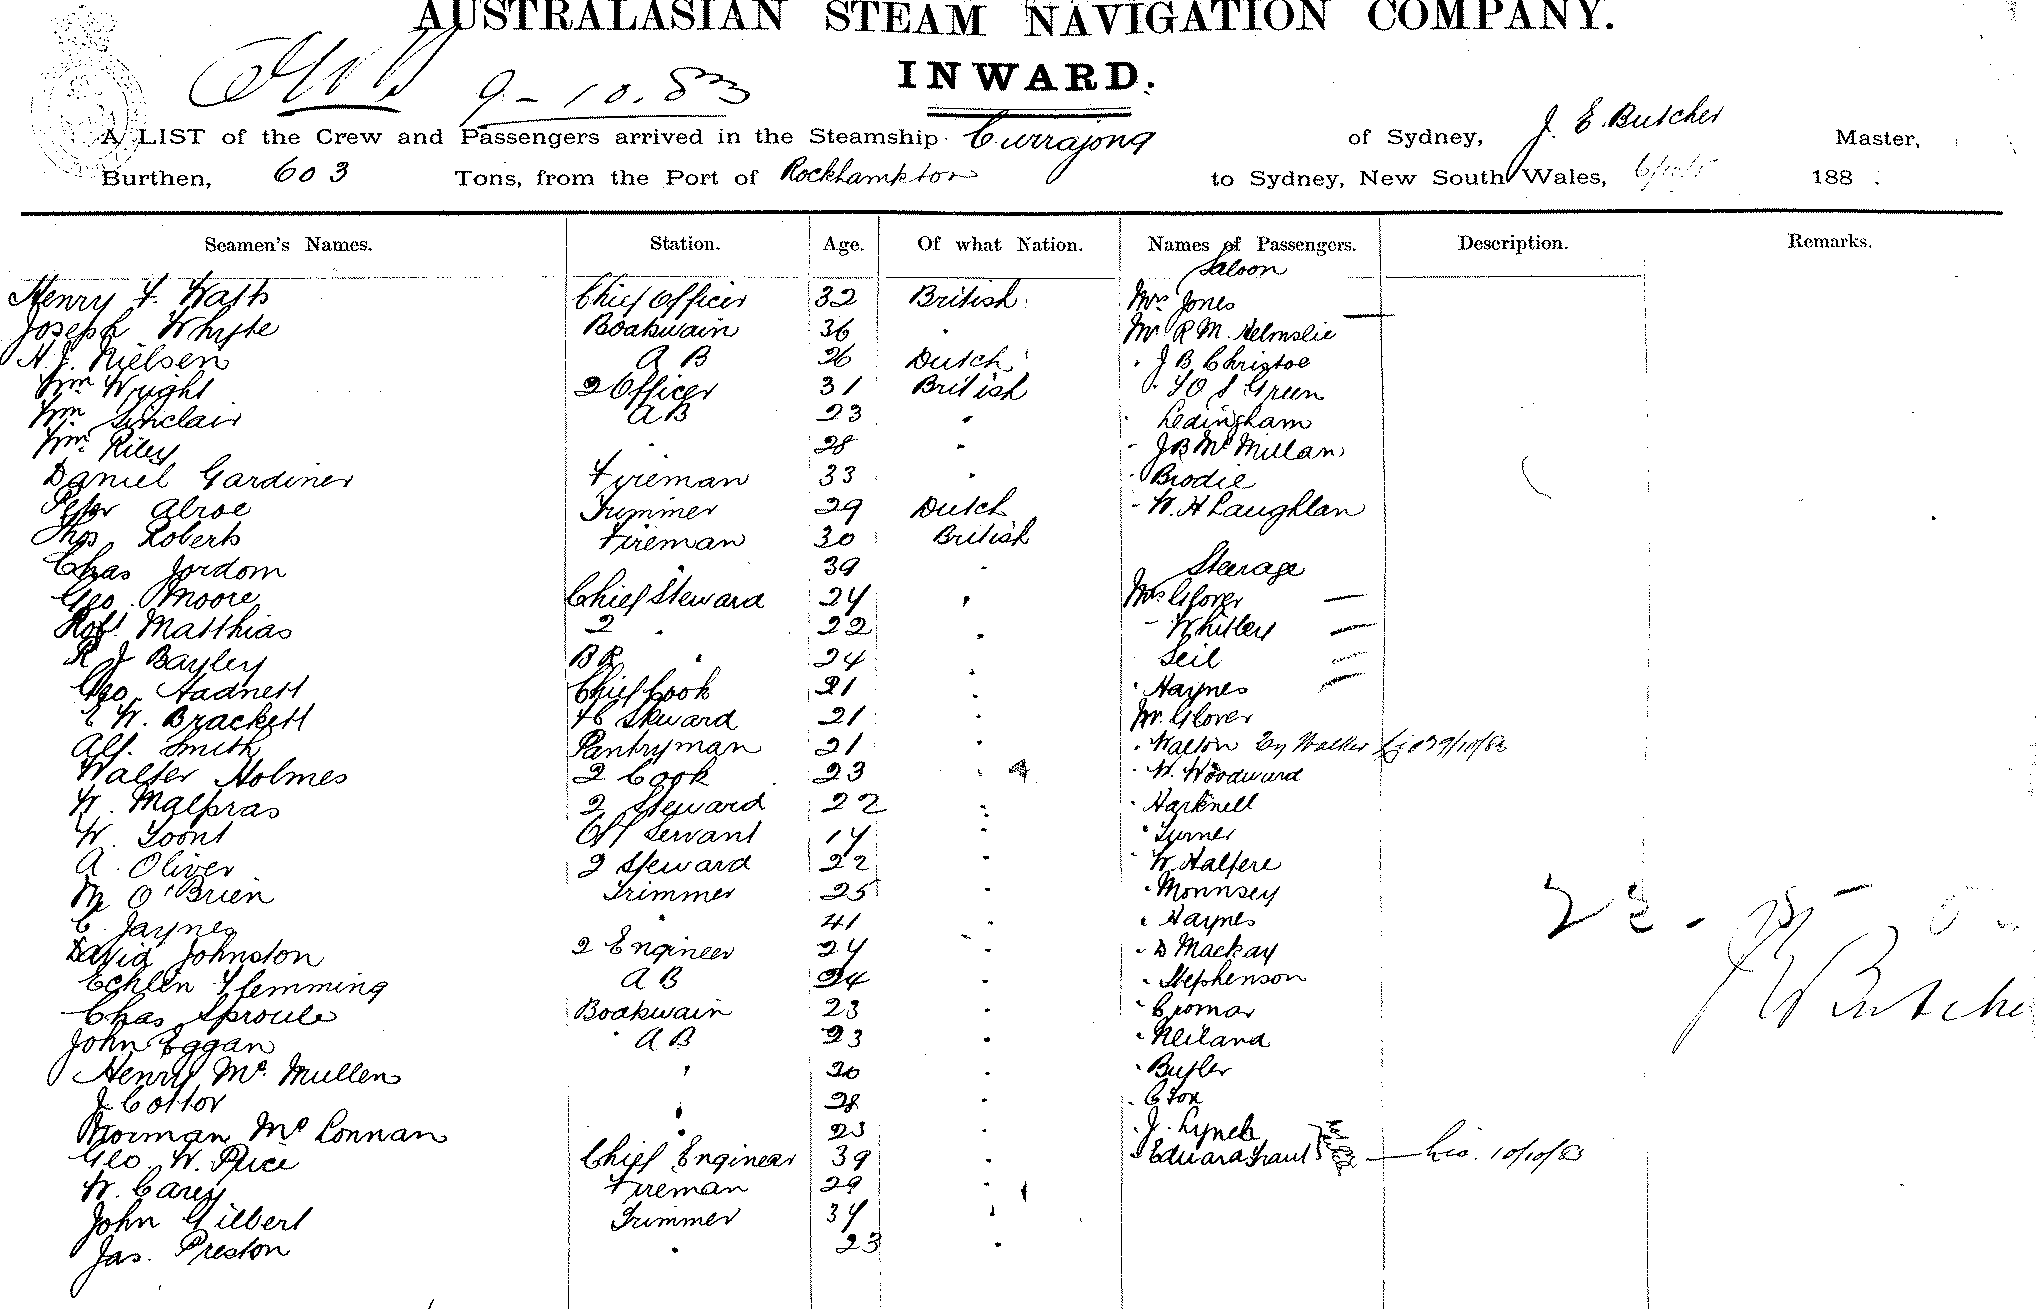 AUSTRALASIAN STEAM NAVIGATION COMPANY.
INWARD.
9-10.83
A LIST of the Crew and Passengers arrived in the Steamship Currajong of Sydney, J. E. Butcher Master,
Burthen, 603 Tons, from the Port of Rockhampton to Sydney, New South Wales, 188
Seamen's Names. Station. Age. Of what Nation. Names of Passengers. Description. Remarks.
Saloon
Henry F. Watts Chief Officer 32 British Mrs Jones
Joseph Whyte Boatswain 36 " Mr R M. Helmslie
H. J. Nielsen A B 26 Dutch " J B Christoe
Wm Wright 2 Officer 31 British " Green
Wm Sinclair A B 23 " " Ledingham
Wm Riley " 28 " " J B McMillan
Daniel Gardiner Fireman 33 " " Brodie
Peter Alroe Trimmer 29 Dutch " W. H Laughlan
Thos Roberts Fireman 30 British
Chas Jordom " 39 " Steerage
Geo. Moore Chief Steward 24 " Mrs Glover
Robt Matthias 2 " 22 " " Whitley
R J Bayley B R " 24 " Seil
Geo. Hadnett Chief Cook 21 " " Haynes
E W. Brackett Steward 21 " Mr Glover
Alf. Smith Pantryman 21 " " Walton Walker 9/10/83
Walter Holmes 2 Cook 23 " " W. Woodward
W. Malpras 2 Steward 22 " " Hartnell
W. Toont Servant 14 " " Turner
A. Oliver 2 Steward 22 " " W. Halpere
M O'Brien Trimmer 25 " " Monnsey
C. Jaynes " 41 " " Haynes
David Johnston 2 Engineer 24 " " D Mackay
Echlin Flemming A B 24 " " Stephenson
Chas Sproule Boatswain 23 " " Cromar
John Eggan " A B 23 " " Neiland
Henry Mc Mullen " 20 " " Butler
J Cottor " 28 " " C Fox
Norman Mc Lonnan " 23 " " J. Lynch
Geo W. Price Chief Engineer 39 " " Edward Grant 10/10/83
W. Carey Fireman 29 "
John Gilbert Trimmer 34 "
Jas. Preston " 23 "
Butcher